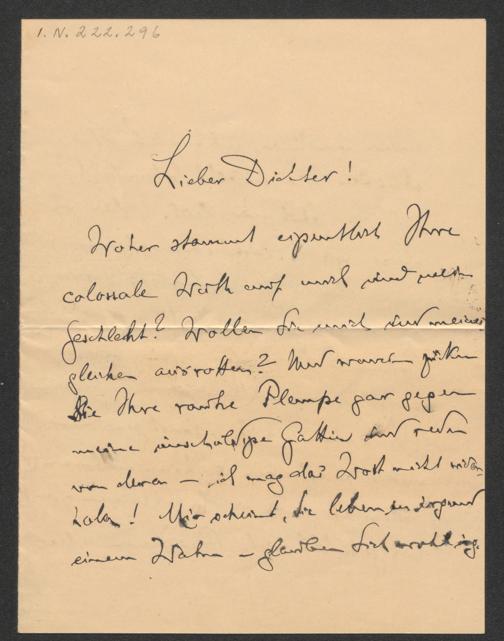 I. N. 222.296
Lieber Dichter!
Woher stammt eigentlich Ihre
colossale Wuth auf mich und mein
Geschlecht? Wollen Sie mich und meines
gleichen ausrotten? Und warum zücken
Sie Ihre rauhe Plempe gar gegen
meine unschuldige Gattin und reden
von deren – ich mag das Wort nicht wieder
holen! Mir scheint, Sie leben in irgend
einem Wahn – glauben Sich wohl